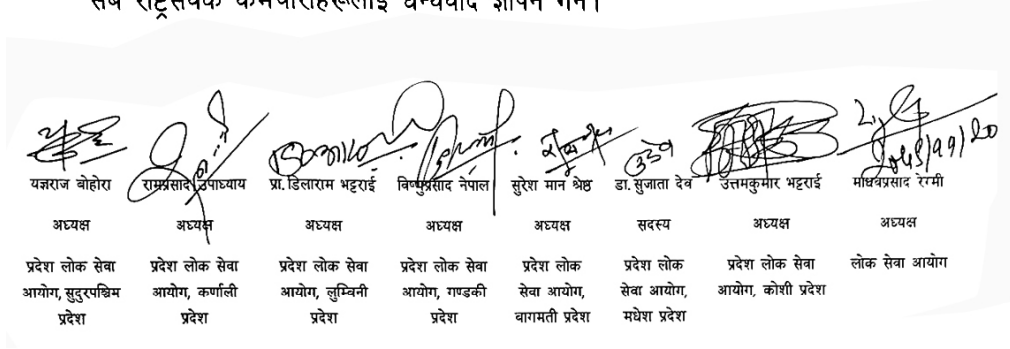 सबै राष्ट्रसेवक कर्मचारीहरूलाई धन्यवाद ज्ञापन गर्ने।
यज्ञराज बोहोरा
अध्यक्ष
प्रदेश लोक सेवा
आयोग, सुदुरपश्चिम
प्रदेश
रामप्रसाद उपाध्याय
अध्यक्ष
प्रदेश लोक सेवा
आयोग, कर्णाली
प्रदेश
प्रा. डिलाराम भट्टराई
अध्यक्ष
प्रदेश लोक सेवा
आयोग, लुम्विनी
प्रदेश
विष्णुप्रसाद नेपाल
अध्यक्ष
प्रदेश लोक सेवा
आयोग, गण्डकी
प्रदेश
सुरेश मान श्रेष्ठ
अध्यक्ष
प्रदेश लोक
सेवा आयोग,
वागमती प्रदेश
डा. सुजाता देव
सदस्य
प्रदेश लोक
सेवा आयोग,
मधेश प्रदेश
उत्तमकुमार भट्टराई
अध्यक्ष
प्रदेश लोक सेवा
आयोग, कोशी प्रदेश
माधवप्रसाद रेग्मी
अध्यक्ष
लोक सेवा आयोग